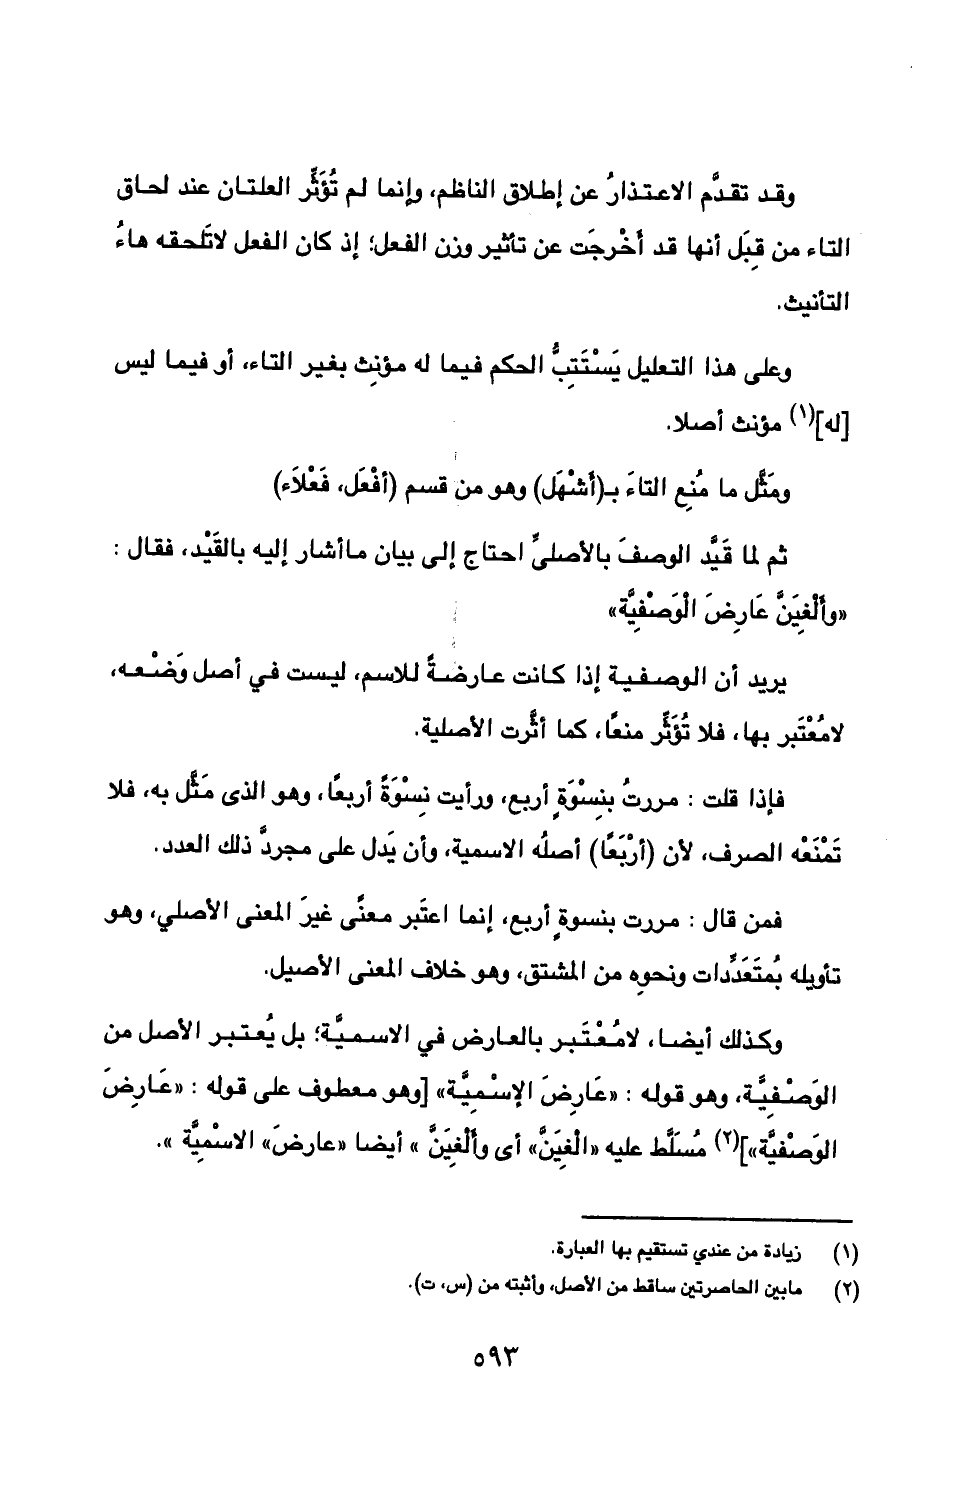 وقد تقدَّم الاعتذارُ عن إطلاق الناظم، وإنما لم تُؤَثِّر العلتان عند لحاق
التاء من قِبَل أنها قد أَخْرجَت عن تأثير وزن الفعل؛ إذ كان الفعل لاتَلحقه هاءُ
التأنيث.
وعلى هذا التعليل يَسْتَتِبُّ الحكم فيما له مؤنث بغير التاء، أو فيما ليس
[له](١) مؤنث أصلا.
ومَثَّل ما مُنِع التاءَ بـ(أَشْهَل) وهو من قسم (أفْعَل، فَعْلاَء)
ثم لما قَيَّد الوصفَ بالأصليِّ احتاج إلى بيان ماأشار إليه بالقَيْد، فقال :
«وأَلْغِيَنَّ عَارِضَ الْوَصْفِيَّة»
يريد أن الوصفية إذا كانت عارضةً للاسم، ليست في أصل وَضْعه،
لامُعْتَبر بها، فلا تُؤَثِّر منعًا، كما أثَّرت الأصلية.
فإذا قلت : مررتُ بنِسْوَةٍ أربع، ورأيت نِسْوَةً أربعًا، وهو الذى مَثَّل به، فلا
تَمْنَعْه الصرف، لأن (أرْبَعًا) أصلُه الاسمية، وأن يَدل على مجردَّ ذلك العدد.
فمن قال : مررت بنسوةٍ أربع، إنما اعتَبر معنًى غيرَ المعنى الأصلي، وهو
تأويله بُمتَعَدِّدات ونحوِه من المشتق، وهو خلاف المعنى الأصيل.
وكذلك أيضا، لامُعْتَبر بالعارض في الاسميَّة؛ بل يُعتبر الأصل من
الوَصْفِيَّة، وهو قوله : «عَارِضَ الإسْمِيَّة» [وهو معطوف على قوله : «عَارِضَ
الوَصْفِيَّة»](٢) مُسَلَّط عليه «الْغِيَنَّ» أى وأَلْغِيَنَّ » أيضا «عارضَ» الاسْمِيَّة ».
(١) زيادة من عندي تستقيم بها العبارة.
(٢) مابين الحاصرتين ساقط من الأصل، وأثبته من (س، ت).
٥٩٣